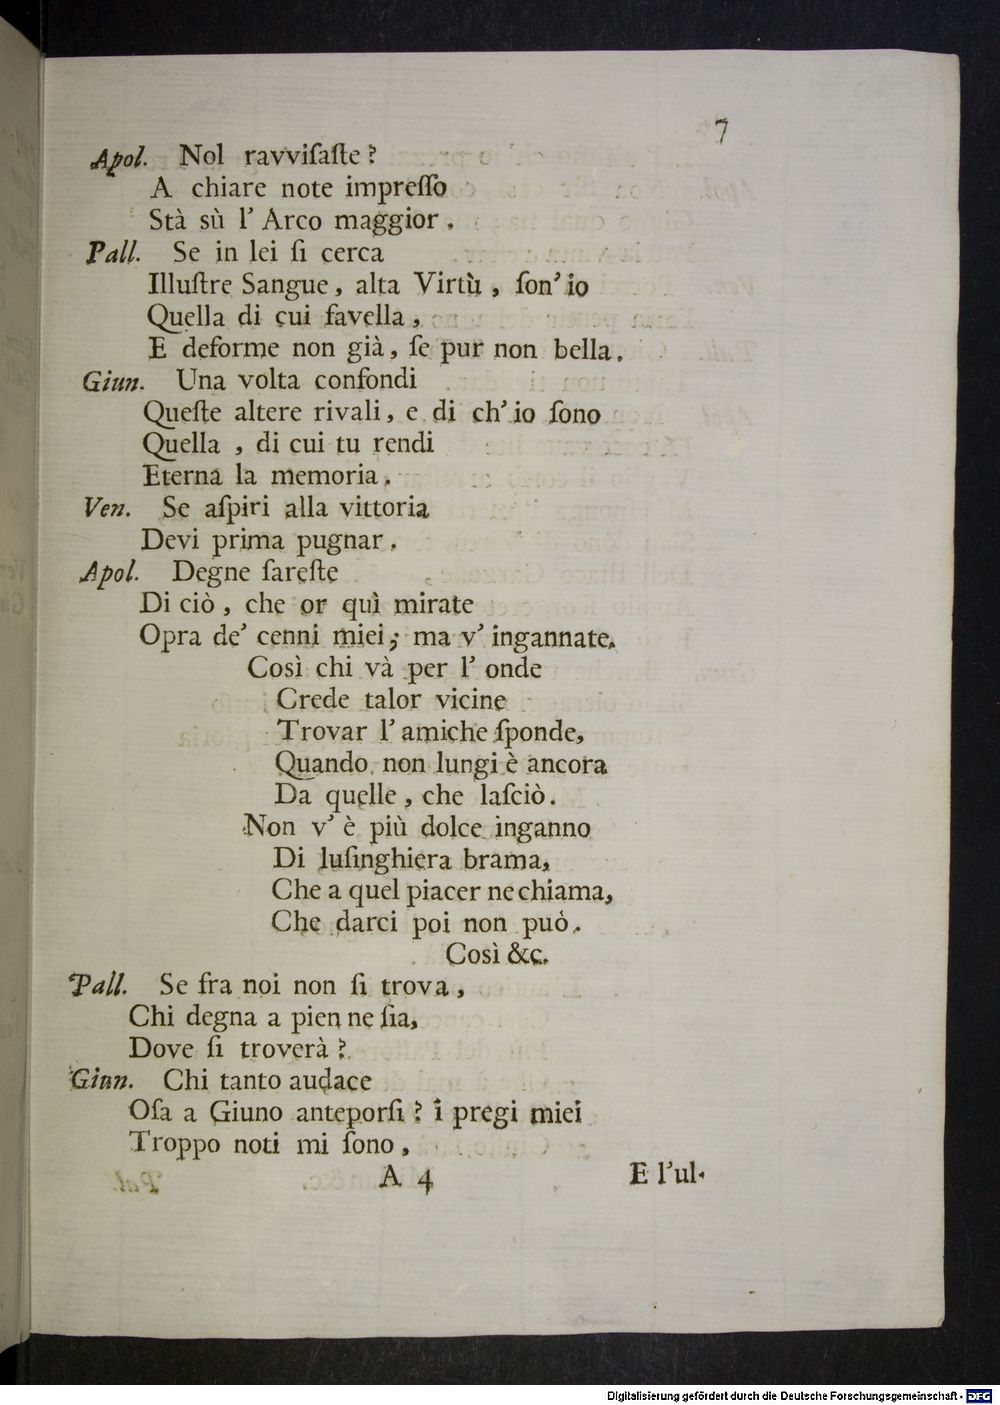 7
Apol. Nol ravviſaſte?
A chiare note impreſſo
Stà sù l' Arco maggior.
Pall. Se in lei ſi cerca
Illuſtre Sangue, alta Virtù, ſon' io
Quella di cui favella,
E deforme non già, ſe pur non bella.
Giun. Una volta confondi
Queſte altere rivali, e di ch' io ſono
Quella, di cui tu rendi
Eterna la memoria.
Ven. Se aſpiri alla vittoria
Devi prima pugnar.
Apol. Degne ſareſte
Di ciò, che or quì mirate
Opra de' cenni miei; ma v' ingannate.
Così chi và per l' onde
Crede talor vicine
Trovar l' amiche ſponde,
Quando non lungi è ancora
Da quelle, che laſciò.
Non v' è più dolce inganno
Di luſinghiera brama,
Che a quel piacer ne chiama,
Che darci poi non può.
Così &c.
Pall. Se fra noi non ſi trova,
Chi degna a pien ne ſia,
Dove ſi troverà?
Giun. Chi tanto audace
Oſa a Giuno anteporſi? i pregi miei
Troppo noti mi ſono,
A 4 E l'ul-
Digitalisierung gefördert durch die Deutsche Forschungsgemeinschaft - DFG